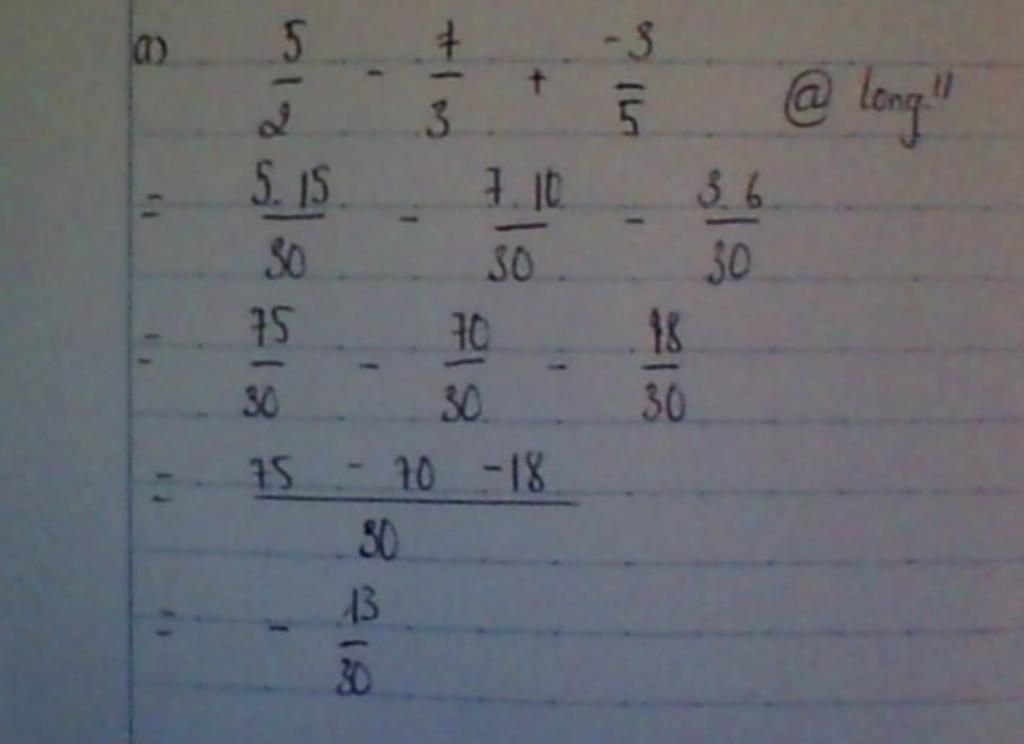 a) 5/2 - 7/3 + -3/5 @ long."
= 5.15/30 - 7.10/30 - 3.6/30
= 75/30 - 70/30 - 18/30
= 75 - 70 - 18/30
= - 13/30